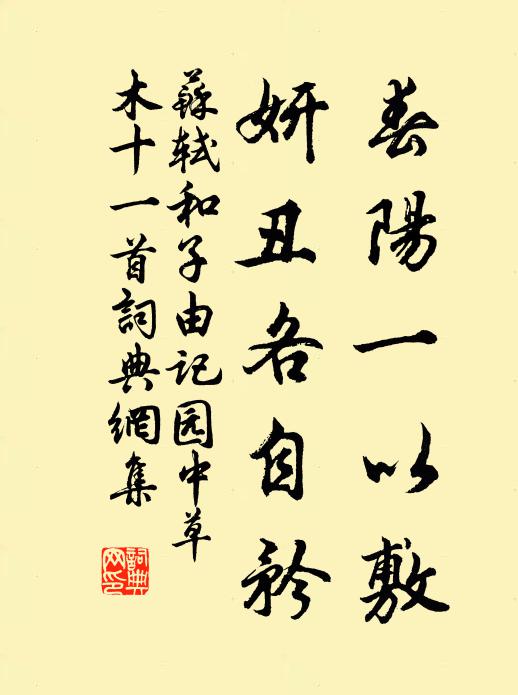 春陽一以敷
妍丑各自矜
蘇軾和子由记园中草
木十一首詞典網集
詞典网印